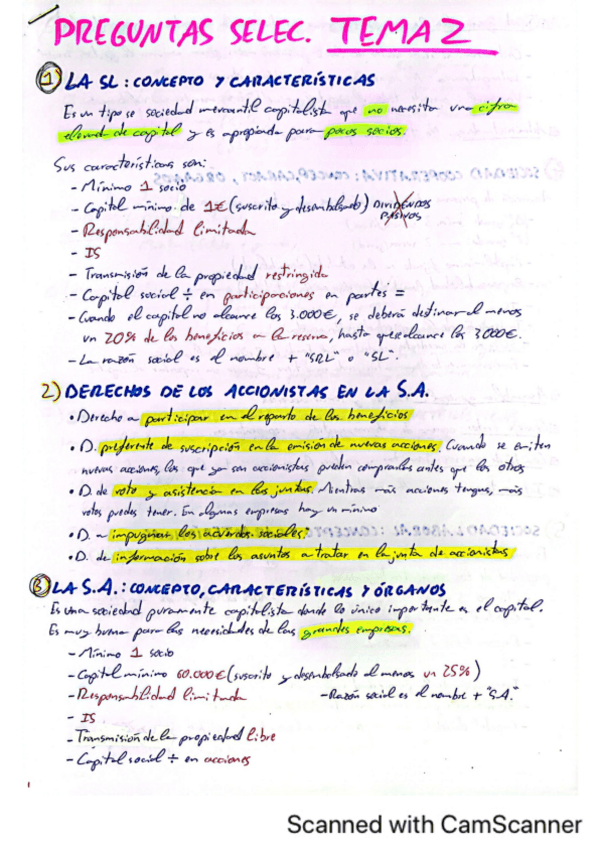 PREGUNTAS SELEC. TEMA 2
1) LA SL: CONCEPTO Y CARACTERÍSTICAS
Es un tipo se sociedad mercantil capitalista que no necesita una cifra
elevada de capital y es apropiada para pocos socios.
Sus características son:
- Mínimo 1 socio
- Capital mínimo de 1€ (suscrito y desembolsado) DIVIDENDOS
PASIVOS
- Responsabilidad limitada
- IS
- Transmisión de la propiedad restringida
- Capital social ÷ en participaciones en partes =
- Cuando el capital no alcance los 3.000€, se deberá destinar al menos
un 20% de los beneficios a la reserva, hasta que se alcance los 3000€.
- La razón social es el nombre + "SRL" o "SL".
2) DERECHOS DE LOS ACCIONISTAS EN LA S.A.
• Derecho a participar en el reparto de los beneficios
• D. preferente de suscripción en la emisión de nuevas acciones. Cuando se emiten
nuevas acciones, los que ya son accionistas pueden comprarlas antes que los otros
• D. de voto y asistencia en las juntas. Mientras más acciones tengas, más
votos puedes tener. En algunas empresas hay un mínimo
• D. a impugnar los acuerdos sociales.
• D. de información sobre los asuntos a tratar en la junta de accionistas
3) LA S.A.: CONCEPTO, CARACTERÍSTICAS Y ÓRGANOS
Es una sociedad puramente capitalista donde lo único importante es el capital.
Es muy buena para las necesidades de las grandes empresas.
- Mínimo 1 socio
- Capital mínimo 60.000€ (suscrito y desembolsado al menos un 25%)
- Responsabilidad limitada - Razón social es el nombre + "S.A."
- IS
- Transmisión de la propiedad libre
- Capital social ÷ en acciones
Scanned with CamScanner